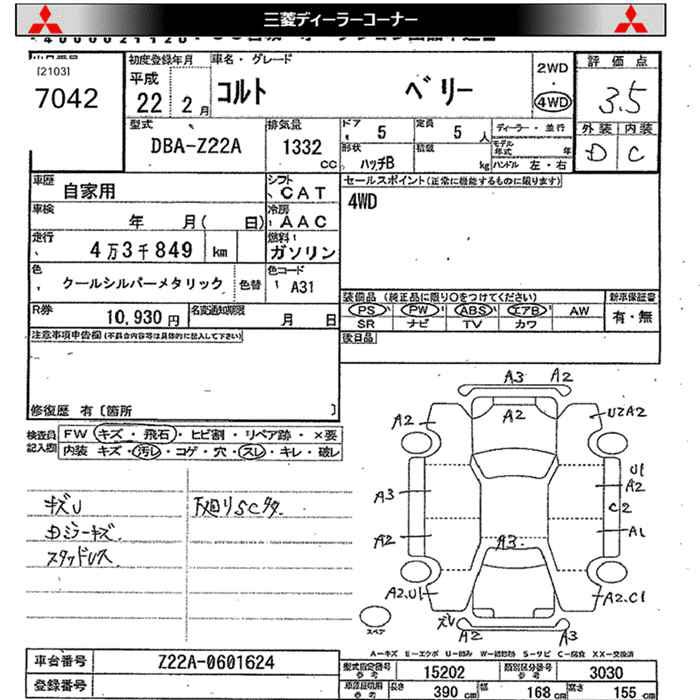 三菱ディーラーコーナー
[2103]
7042
初度登録年月
平成
22 2月
車名・グレード
コルト ベリー
2WD
・
4WD
評価点
3.5
外装 内装
D C
型式
DBA-Z22A
排気量
1332
cc
ドア 5
定員 5 人
ディーラー・並行
形状 ハッチB
積載 kg
モデル年式 年
ハンドル 左・右
車歴
自家用
シフト
CAT
セールスポイント(正常に機能するものに限ります)
4WD
車検
年 月( 日)
冷房
AAC
走行
4万3千849 km
燃料
ガソリン
色
クールシルバーメタリック
色替
色コード
A31
装備品 (純正品に限り○をつけてください)
新車保証書
PS PW ABS エアB AW
有・無
SR ナビ TV カワ
R券
10,930 円
名変通知期限
月 日
後日品
注意事項申告欄(不具合内容等は具体的に記入して下さい)
修復歴 有 〔箇所 〕
検査員記入欄
FW キズ・飛石・ヒビ割・リペア跡・×要
内装 キズ・汚レ・コゲ・穴・スレ・キレ・破レ
キズU
Dミラーキズ
スタッドレス
下廻りSCタタ
A3 A2
A2
A2
U2A2
A3
U1
A2
C2
A2
A1
A3
A2.U1
A2.C1
ズレ
A2 A3
スペア
A-キズ E-エクボ U-凹み W-補修跡 S-サビ C-腐食 XX-交換済
車台番号
Z22A-0601624
登録番号
型式指定番号
参考
15202
類別区分番号
参考
3030
車庫証明用
参考
長さ 390 cm
幅 168 cm
高さ 155 cm